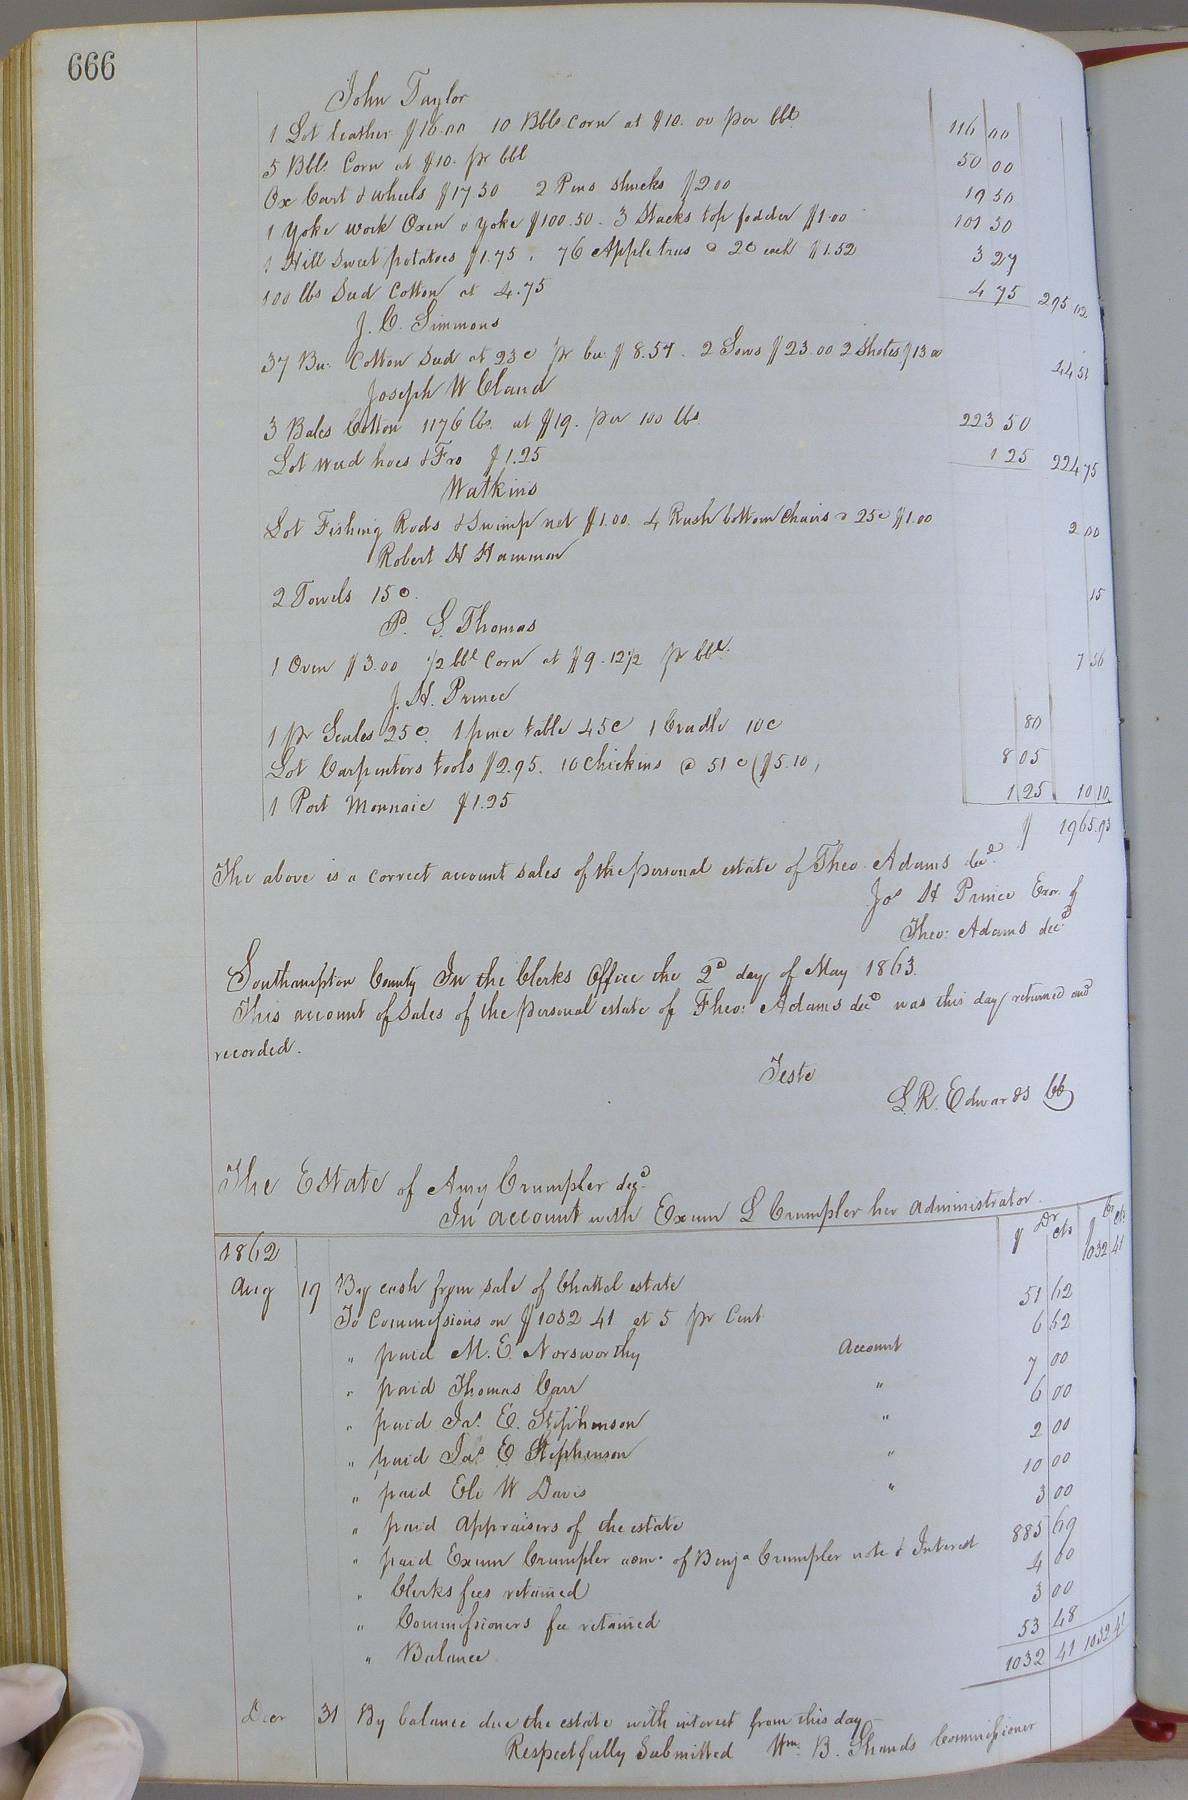 666
John Taylor
1 Lot leather $16.00 10 Bbls. Corn at $10.00 per bbl. 116 00
5 Bbls. Corn at $10. pr bbl 50 00
Ox Cart & wheels $17.50 2 Pens shucks $2.00 19 50
1 Yoke work Oxen & yoke $100.50. 3 Stacks top fodder $1.00 101 50
1 Hill Sweet potatoes $1.75, 76 Apple trees @ 2c each $1.52 3 27
100 lbs Seed Cotton at 4.75 4 75 295 02
J. C. Simmons
37 Bu. Cotton Seed at 23c pr bu: $8.51. 2 Sows $23.00 2 Shotes $13 00 44 51
Joseph W Claud
3 Bales Cotton 1176 lbs. at $19. per 100 lbs. 223 50
Lot weed hoes & Fro $1.25 1 25 224 75
Watkins
Lot Fishing Rods & Swimp net $1.00. 4 Rush bottom Chairs @ 25c $1.00 2 00
Robert H Hammon
2 Towels 15c. 15
P. G. Thomas
1 Oven $3.00 1/2 bbl Corn at $9.12 1/2 pr bbl. 7 56
J. H. Prince
1 pr Scales 25c. 1 pine table 45c 1 Cradle 10c 80
Lot Carpenters tools $2.95. 10 Chickins @ 51c ($5.10, 8 05
1 Port Monnaie $1.25 1 25 10 10
$ 1965.93
The above is a correct account sales of the personal estate of Theo. Adams decd.
Jos H Prince Exor. of
Theo: Adams decd
Southampton County In the Clerks Office the 2d day of May 1863.
This account of Sales of the personal estate of Theo: Adams decd was this day returned and
recorded.
Teste
L. R. Edwards CC
The Estate of Amy Crumpler decd.
In account with Exum L Crumpler her administrator.
1862 $ Dr cts $ Cr cts
Aug 19 By cash from sale of Chattel estate 1032 41
To Commissions on $1032 41 at 5 pr Cent 51 62
" paid M. E. Norsworthy Account 6 62
" paid Thomas Carr " 7 00
" paid Jas. E. Stephenson " 6 00
" paid Jas. E Stephenson " 2 00
" paid Eli W Davis " 10 00
" paid Appraisers of the estate 3 00
" paid Exum Crumpler admr. of Benja Crumpler note & Interest 885 69
" Clerks fees retained 4 00
" Commissioners fee retained 3 00
" Balance 53 48
1032 41 1032 41
Decr 31 By balance due the estate with interest from this day
Respectfully Submitted Wm. B. Shands Commissioner